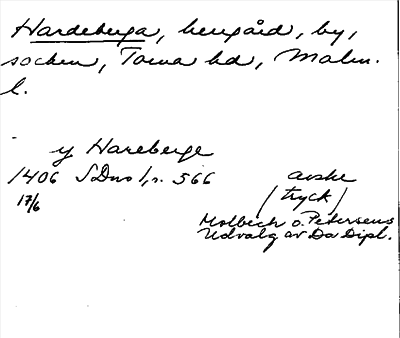 Hardeberga, herrgård, by,
socken, Torna hd, Malm.
l.
y Hareberge
1406 SDns 1, s. 566
17/6
avskr
(tryck)
Molbech o. Petersens
Udvalg av Da Dipl.